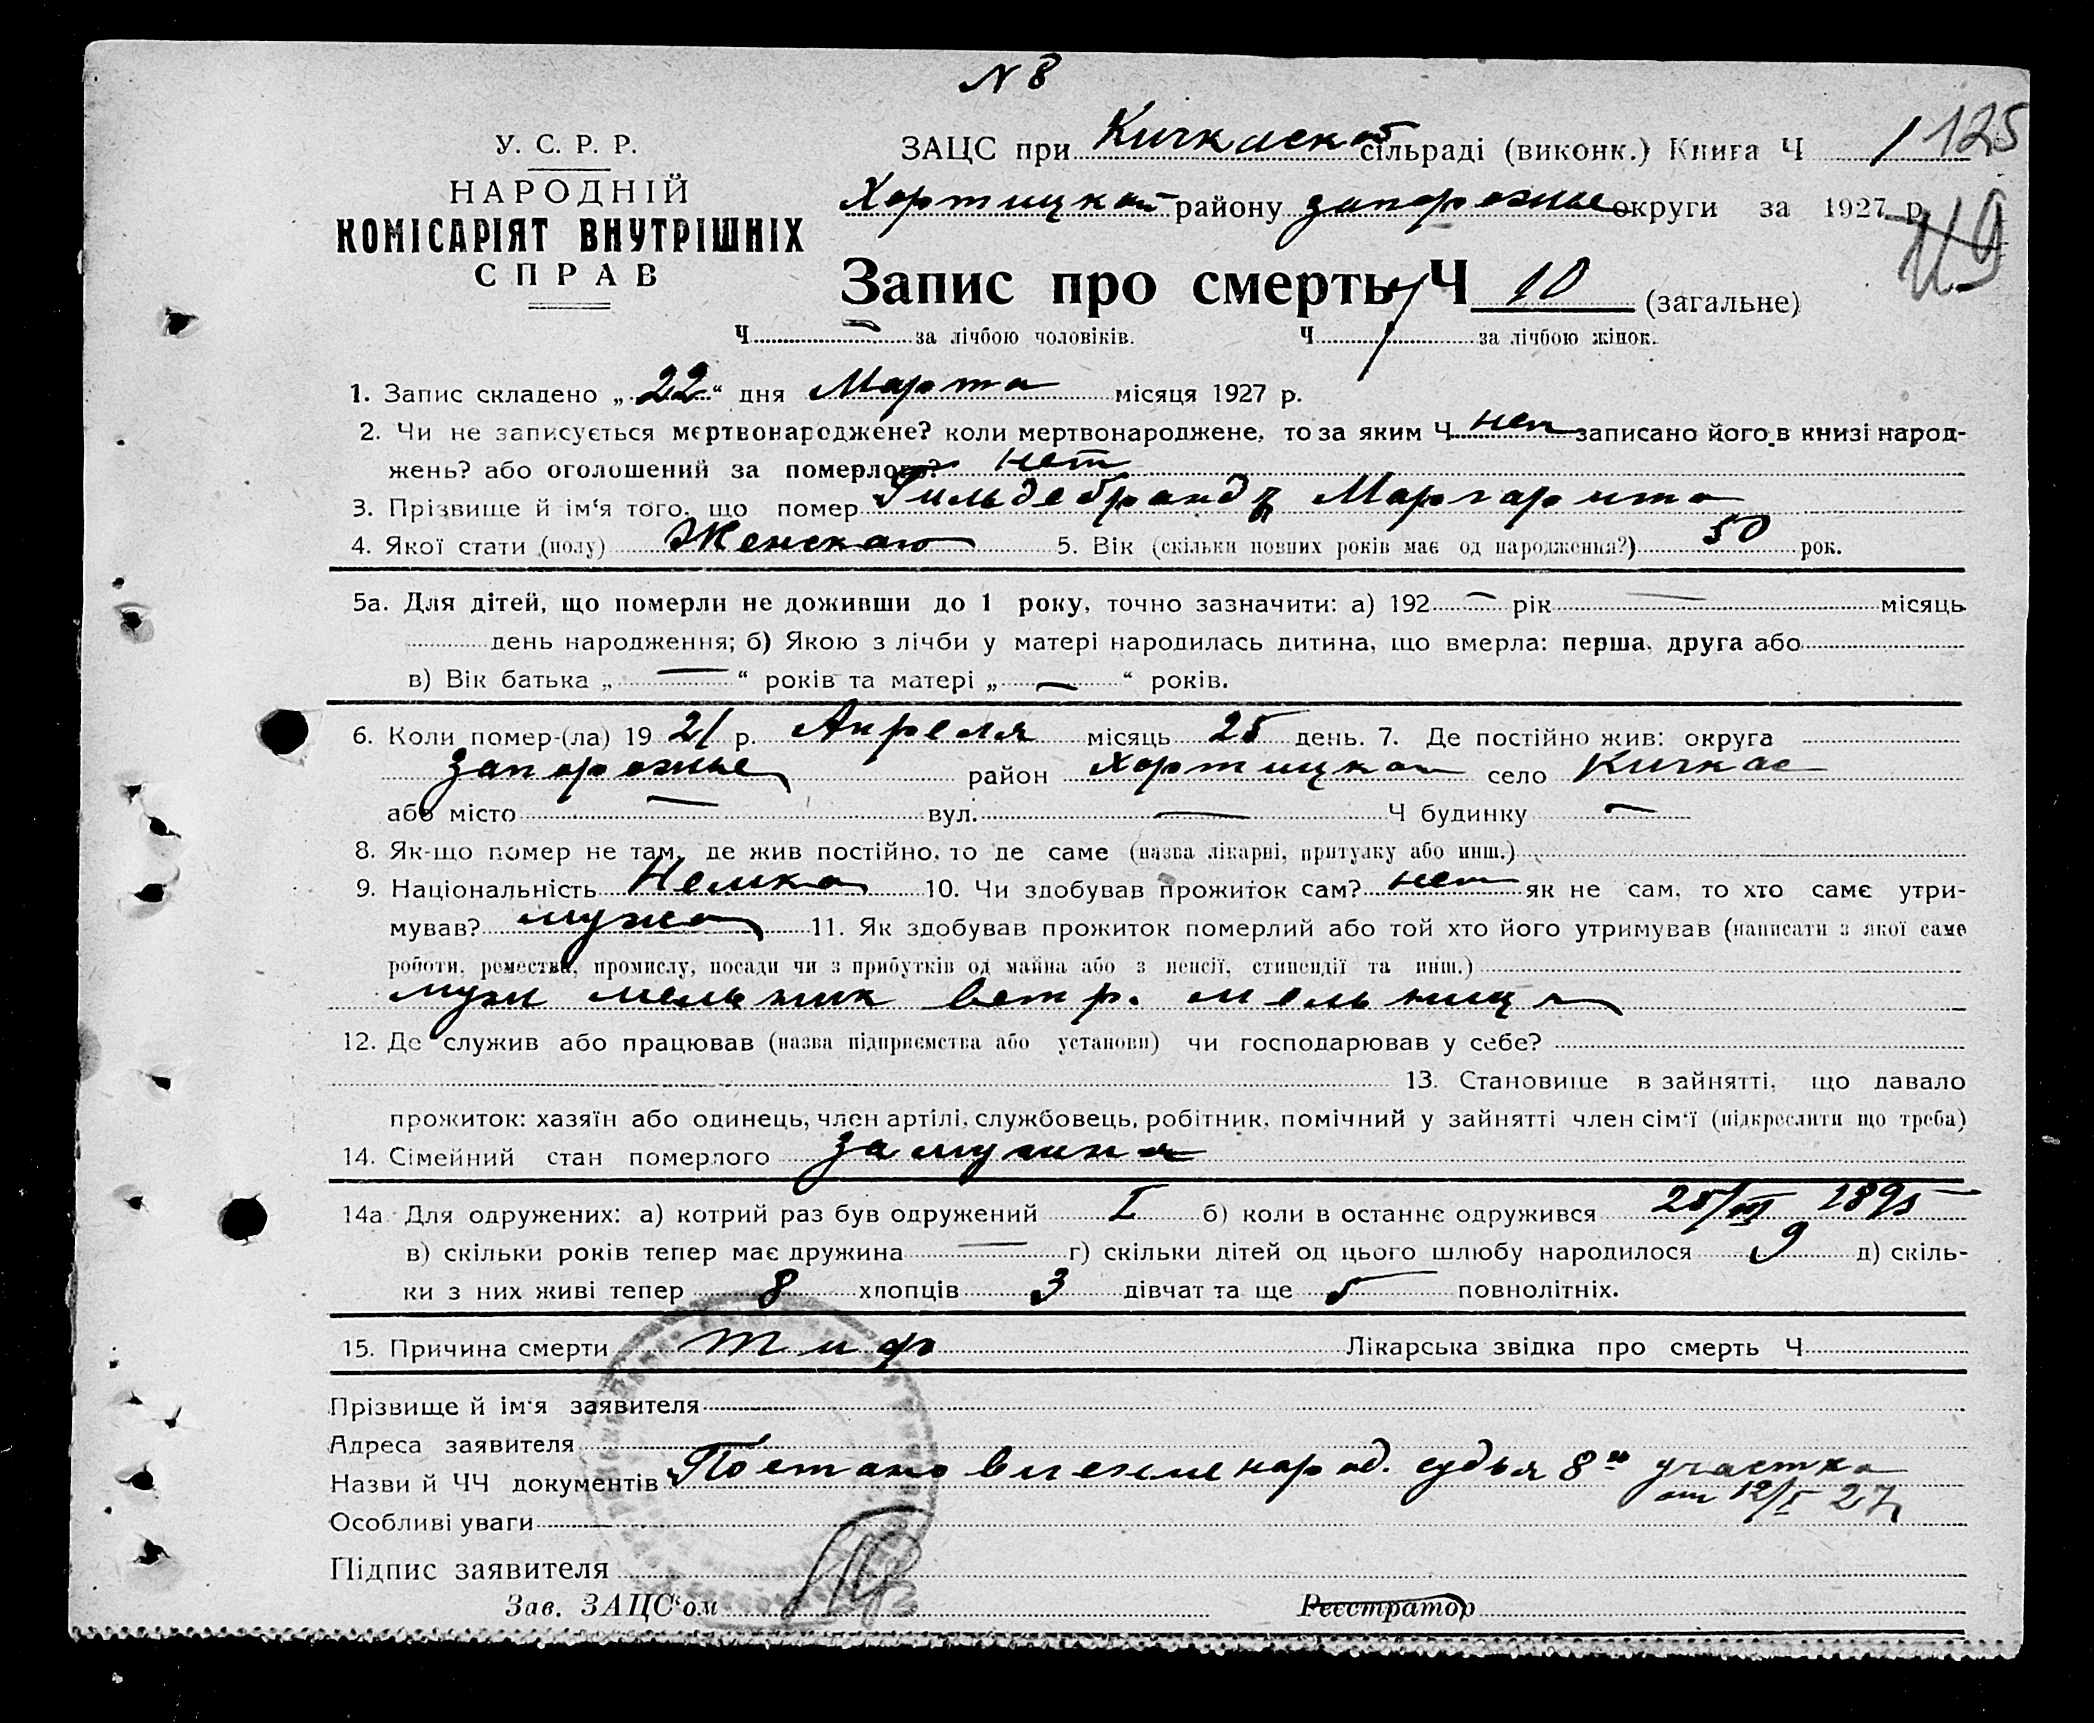 N 8
У. С. Р. Р.
НАРОДНІЙ
КОМІСАРІЯТ ВНУТРІШНІХ
СПРАВ
ЗАЦС при Кичкаской сільраді (виконк.) Книга Ч 1 125
Хортицкой району Запорожье округи за 1927 р.
119
Запис про смерть Ч 10 (загальне)
Ч — за лічбою чоловіків. Ч за лічбою жінок.
1. Запис складено „22“ дня Марта місяця 1927 р.
2. Чи не записується мертвонароджене? коли мертвонароджене, то за яким Ч нет записано його в книзі народ-
жень? або оголошений за померлого? нет
3. Прізвище й ім‘я того, що помер Гильдебрандт Маргарита
4. Якої стати (полу) Женского 5. Вік (скільки повних років має од народження?) 50 рок.
5а. Для дітей, що померли не доживши до 1 року, точно зазначити: а) 192 — рік — місяць
день народження; б) Якою з лічби у матері народилась дитина, що вмерла: перша, друга або
в) Вік батька „ — “ років та матері „ — “ років.
6. Коли помер-(ла) 1921 р. Апреля місяць 25 день. 7. Де постійно жив: округа
Запорожье район Хортицкой село Кичкас
або місто — вул. — Ч будинку —
8. Як-що помер не там, де жив постійно, то де саме (назва лікарні, притулку або инш.)
9. Національність Немка 10. Чи здобував прожиток сам? нет як не сам, то хто саме утри-
мував? мужа 11. Як здобував прожиток померлий або той хто його утримував (написати з якої саме
роботи, ремества, промислу, посади чи з прибутків од майна або з пенсії, стипендії та инш.)
муж мельник ветр. мельница
12. Де служив або працював (назва підприємства або установи) чи господарював у себе?
13. Становище в зайнятті, що давало
прожиток: хазяїн або одинець, член артілі, службовець, робітник, помічний у зайнятті член сім‘ї (підкреслити що треба)
14. Сімейний стан померлого замужня
14а Для одружених: а) котрий раз був одружений I б) коли в останнє одружився 25/III 1895
в) скільки років тепер має дружина — г) скільки дітей од цього шлюбу народилося 9 д) скіль-
ки з них живі тепер 8 хлопців 3 дівчат та ще 5 повнолітніх.
15. Причина смерти тиф Лікарська звідка про смерть Ч
Прізвище й ім‘я заявителя
Адреса заявителя
Назви й ЧЧ документів Постановление народ. судья 8го участка
от 12/I 27
Особливі уваги
Підпис заявителя
Зав. ЗАЦС‘ом Реєстратор